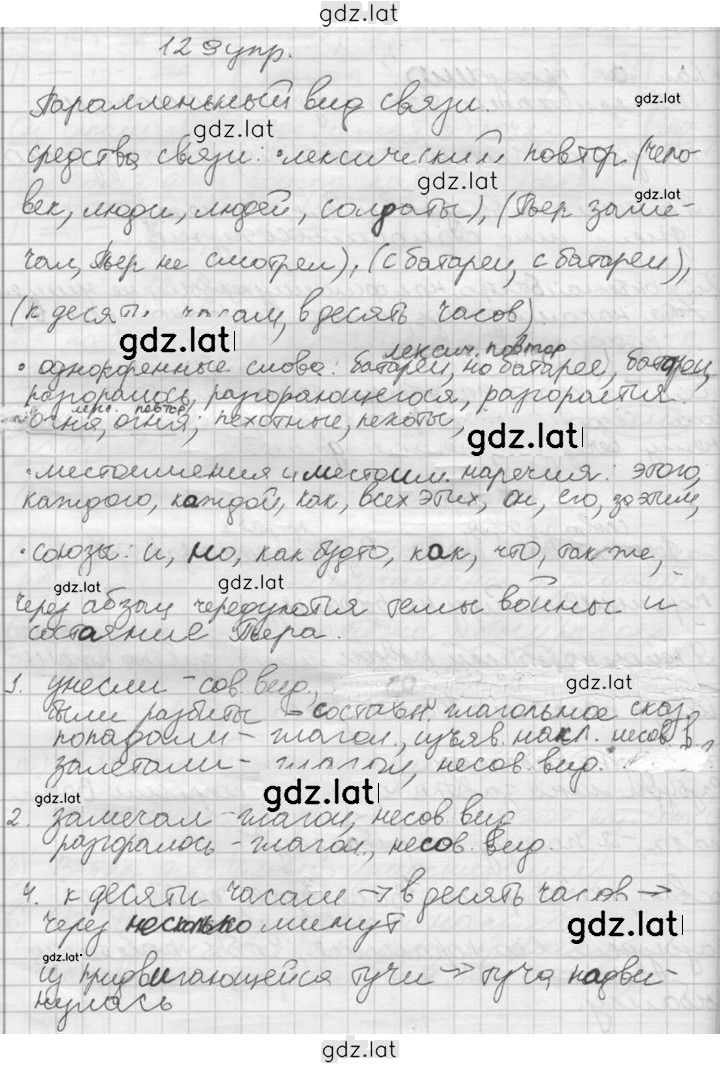 gdz.lat
129 упр.
Параллельный вид связи.
gdz.lat
gdz.lat
средства связи: •лексический повтор (чело-
gdz.lat
gdz.lat
век, люди, людей, солдаты), (Пьер заме-
чал, Пьер не смотрел), (с батареи, с батареи),
(к десяти часам, в десять часов)
gdz.lat
лексич. повтор
• однокоренные слова: батареи, но батарее, батареи,
разгоралось, разгорающегося, разгорается
лекс. повтор
огня, огня; пехотные, пехоты,
gdz.lat
•местоимения и местоим. наречия: этого,
каждого, каждой, как, всех этих, он, его, за этим,
•союзы: и, но, как будто, как, что, так же,
gdz.lat
gdz.lat
gdz.lat
через абзац чередуются темы войны и
состаяние Пьера.
1. унесли - сов. вид.,
gdz.lat
были разбиты - состав. глагольное сказ.
попадали - глагол., изъяв. накл. несов. в.
залетали - глагол, несов. вид.
gdz.lat
gdz.lat
2. замечал - глагол, несов. вид
разгоралось - глагол, несов. вид.
4. к десяти часам → в десять часов →
через несколько минут
gdz.lat
gdz.lat
из придвигающейся тучи → туча надви-
нулась
gdz.lat